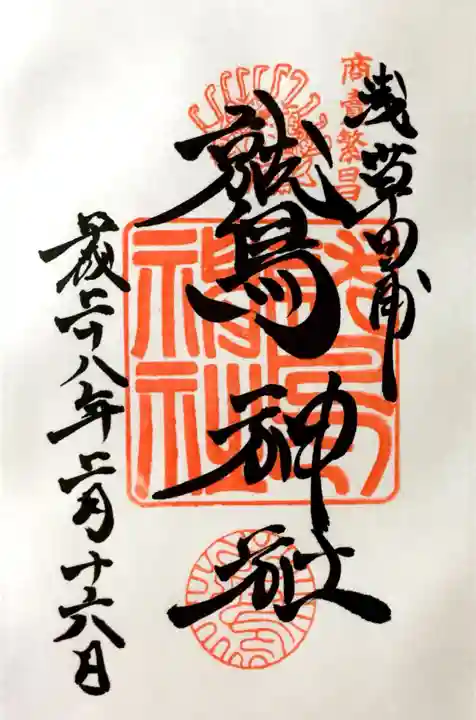 商賣繁昌
浅草田甫
鷲神社
平成二十八年二月十六日